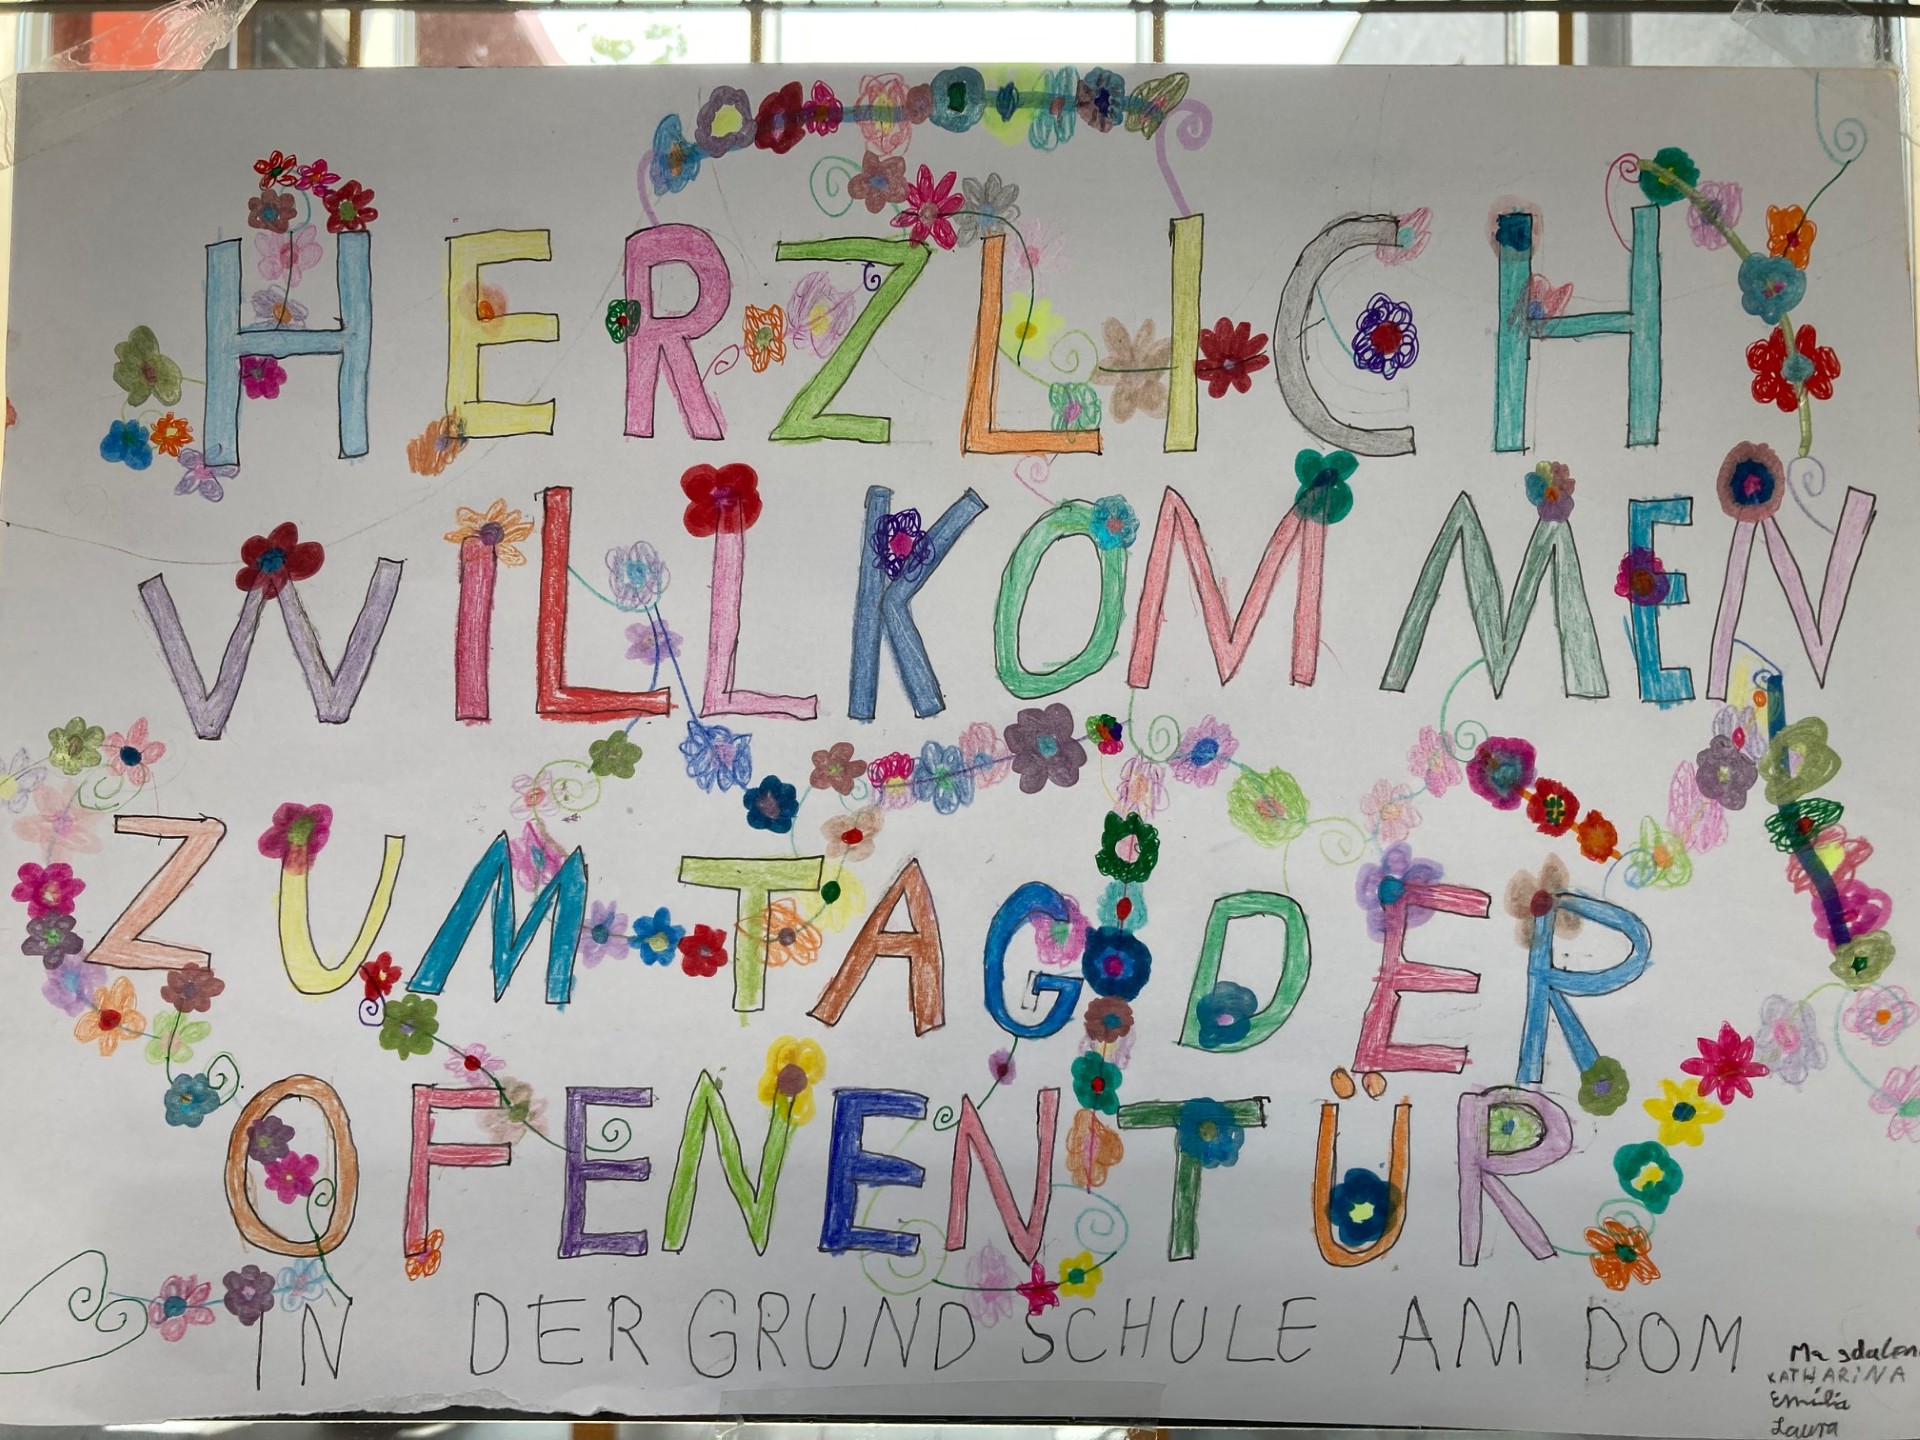 HERZLICH
WILLKOMMEN
ZUM TAG DER
OFENEN TÜR
IN DER GRUNDSCHULE AM DOM
Magdalena
KATHARINA
Emilia
Laura